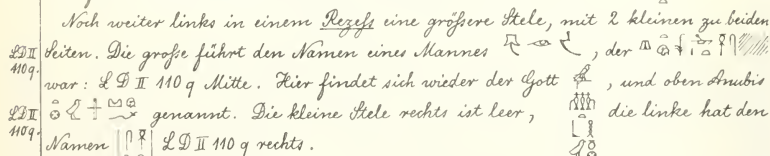 Noch weiter links in einem Rezess eine größere Stele, mit 2 kleinen zu beiden
LD II Seiten. Die große führt den Namen eines Mannes , der
110 q. war: LD II 110 q Mitte. Hier findet sich wieder der Gott , und oben Anubis
LD II genannt. Die kleine Stele rechts ist leer, die linke hat den
110 q. Namen LD II 110 q rechts.